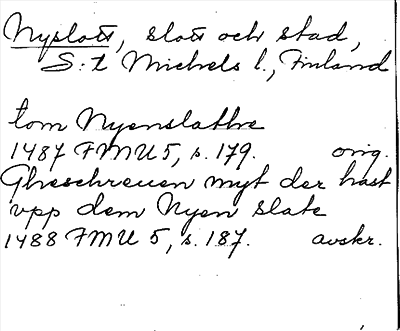 Nyslott, slott och stad,
S:t Michels l., Finland
tom Nyenslathe
1487 FMU 5, s. 179. orig.
Gheschreuen myt der hast
vpp dem Nyen slate
1488 FMU 5, s. 187. avskr.